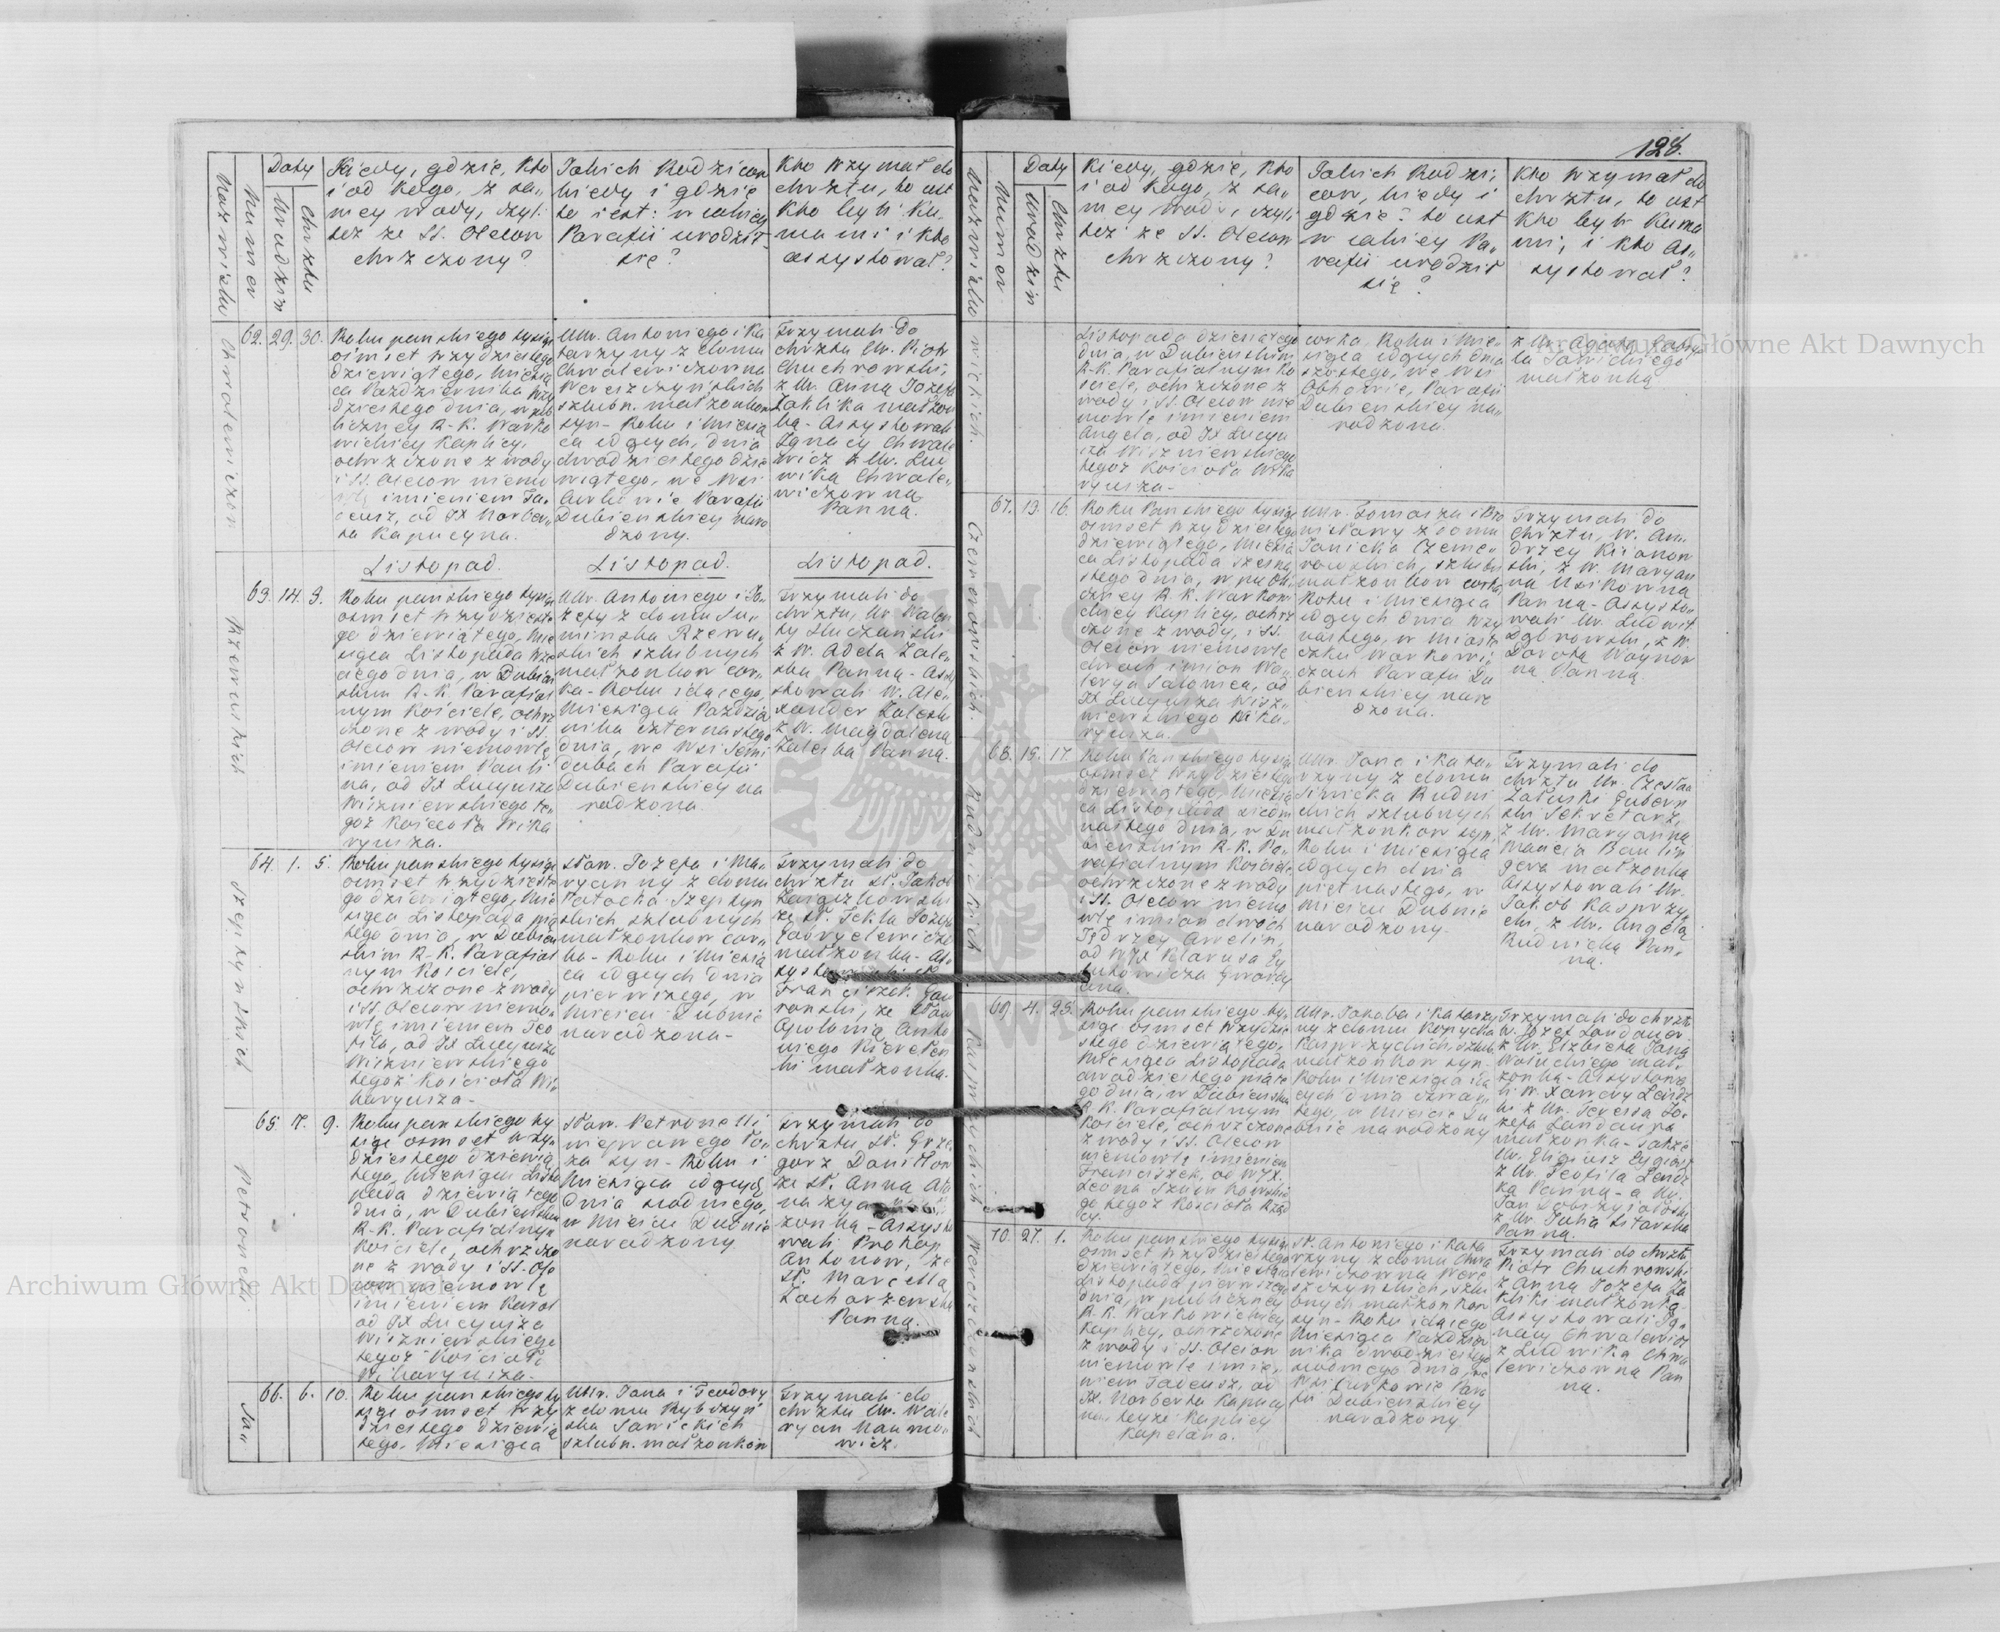 128.
Daty
Nazwisku
Numer
Urodzin
Chrztu
Kiedy, gdzie, Kto
i od Kogo, z sa„
mey wody, czyli
też ze SS. Olejow
chrzczony?
Jakich Rodzicow
kiedy i gdzie
to iest: w iakiey
Parafii urodził
się?
Kto trzymał do
chrztu, to iest
Kto byli Ku„
mami i kto
assystował?
Chwalewiczow
62. 29. 30.
Roku panskiego tysiąc
osmset trzydziestego
dziewiątego, miesią
ca Października trzy
dziestego dnia, w pub
liczney R-K. Warko
wickiey Kaplicy,
ochrzczone z wody
i SS. Olejow niemo
wlę imieniem Ta
deusz, od JX Norber„
ta Kapucyna.
Ur. Antoniego i Ka
tarzyny z domu
Chwalewiczowna
Wereszczyńskich
szlubn. małżonkow
syn - Roku i Miesią
ca idących, dnia
dwadziestego dzie
wiątego, we Wsi
Parafii
Dubienskiey naro
dzony.
Trzymali do
chrztu Ur. Piotr
Chuchrowski,
z Ur. Anną Józefa
Zaklika małżon
ką - Assystowali
Ignacy Chwale
wicz z Ur. Lud
wiką Chwale„
wiczowną
Panną.
Listopad.
Listopad.
Listopad.
Rzewuskich
63. 14. 3.
Roku panskiego tysiąc
osmset trzydzieste
go dziewiątego, Mie
siąca Listopada trze
ciego dnia, w Dubien
skim R-K. Parafial
nym Kościele, ochrz
czone z wody i SS.
Olejow niemowlę
imieniem Pauli
na, od JX Lucyusza
Wiszniewskiego te„
goż Kościoła Wika
ryusza.
Ur. Antoniego i Jó„
zefy z domu Su„
minska Rzewu„
skich szlubnych
małżonkow cor„
ka - Roku idącego,
Miesiąca Paździer
nika czternastego
dnia, we Wsi Semi
dubach Parafii
Dubienskiey na
rodzona.
Trzymali do
chrztu, Ur Walen
ty
z W. Adelą Zale„
ską Panną - Assy
stowali W. Ale„
xander Zaleski
z W. Magdaleną
Zaleską Panną.
Szeptynskich
64. 1. 5.
Roku panskiego tysiąc
osmset trzydzieste
go dziewiątego, Mie
siąca Listopada pią
tego dnia, w Dubien
skim R-K. Parafial
nym Kościele,
ochrzczone z wody
i SS. Olejow niemo„
wlę imieniem Teo
fila, od JX Lucyusza
Wiszniewskiego
tegoż Kościoła Wi„
karyusza -
Sław. Józefa i Ma„
ryanny z domu
Patocka Szeptyn
skich szlubnych
małżonkow cor„
ka - Roku i Miesią
ca idących dnia
pierwszego, w
Mieście Dubnie
narodzona -
Trzymali do
chrztu St. Jakob
ze St. Teklą Józefa
małżonką - As„
systowali St.
Franciszek
ronski, ze Sław
Apolonią Anto
niego
ki małżonką.
Petronelli
65. 7. 9.
Roku panskiego ty
siąc osmset trzy„
dziestego dziewią
tego, Miesiąca Listo
pada dziewiątego
dnia, w Dubienskim
R-K. Parafialnym
Kościele, ochrzczo
ne z wody i SS. Ole
jow niemowlę
imieniem Karol
od JX Lucyusza
Wiszniewskiego
tegoż Kościoła
Wikaryusza -
Sław. Petronelli
nieprawego ło„
ża syn - Roku i
Miesiąca idących
dnia siodmego,
w Mieście Dubnie
narodzony
Trzymali do
chrztu St. Grze
gorz Daniłow
ze St. Anną
żonką - Assysto
wali Prokop
Antonow, ze
St. Marcellą
Zacharzewską
Panną.
Saw
66. 6. 10.
Roku panskiego ty
siąc osmset trzy
dziestego dziewią
tego, Miesiąca
Ur. Jana i Teodory
z domu Rybczyń
ska Sawickich
szlubn. małżonkow
Trzymali do
chrztu Ur. Wale
ryan Naumo„
wicz.
Nazwisku
Numer
Daty
Urodzin
Chrztu
Kiedy, gdzie, Kto
i od Kogo, z sa„
mey wody, czyli
też ze SS. Olejow
chrzczony?
Jakich Rodzi„
cow, kiedy i
gdzie? to iest
w iakiey Pa„
rafii urodził
się?
Kto trzymał do
chrztu, to iest
Kto byli Kuma
mi, i kto As„
systował?
wickich.
Listopada dziesiątego
dnia, w Dubienskim
R-K. Parafialnym Ko
ściele, ochrzczone z
wody i SS. Olejow nie
mowlę imieniem
Angela, od JX Lucyu
sza Wiszniewskiego
tegoż Kościoła Wika
ryusza -
corka, Roku i Mie„
siąca idących dnia
szóstego, we Wsi
Parafii
Dubienskiey na„
rodzona.
z Ur. Agatą
Sawickiego
małżonką
Czemerowskich.
67. 13. 16.
Roku Panskiego tysiąc
osmset trzydziestego
dziewiątego, Miesią
ca Listopada szesna
stego dnia, w publi
czney R-K. Warkow
ickiey Kaplicy, ochrz
czone z wody, i SS.
Olejow niemowlę
dwoch imion Wa„
lerya Salomea, od
JX Lucyusza Wisz„
niewskiego Wika„
ryusza.
Ur. Tomasza i Bro
nisławy z domu
Janicka Czeme„
rowskich, szlubn
małżonkow corka,
Roku i Miesiąca
idących dnia trzy
nastego, w Miaste
czku Warkowi„
czach Parafii Du
bienskiey naro
dzona.
Trzymali do
chrztu, W. An„
drzey Kiianow
ski, z W. Maryan
ną
Panną - Assysto„
wali Ur. Ludwik
Dąbrowski, z W.
Dorotą Woynow
ną Panną
Rudnickich
68. 15. 17.
Roku Panskiego tysiąc
osmset trzydziestego
dziewiątego, Miesią
ca Listopada siedm
nastego dnia, w Du
bienskim R-K. Pa„
rafialnym Kościele
ochrzczone z wody
i SS. Olejow niemo
wlę imion dwoch
Jędrzey Awelin,
od WJX Klarusa
ana.
Ur. Jana i Kata„
rzyny z domu
Rudni
ckich szlubnych
małżonkow syn,
Roku i Miesiąca
idących dnia
piętnastego, w
Mieście Dubnie
narodzony.
Trzymali do
chrztu Ur. Czesław
Załuski Gubern
ski Sekretarz,
z Ur. Maryanną
małżonką
Assystowali Ur.
Jakob Kasprzy„
cki, z Ur. Angelą
Rudnicką Pan„
ną.
Kasprzyckich
69. 4. 25.
Roku panskiego ty„
siąc osmset trzydzie
stego dziewiątego,
Miesiąca Listopada
dwadziestego piąte
go dnia, w Dubienskim
R-K. Parafialnym
Kościele, ochrzczone
z wody i SS. Olejow
niemowlę imieniem
Franciszek, od WJX.
Leona
go tegoż Kościoła Rząd
cy.
Ur. Jakoba i Katarzy
ny z domu Kopycka
Kasprzyckich, szlub.
małżonkow syn -
Roku i Miesiąca idą
cych dnia czwar
tego, w Mieście Du
bnie narodzony
Trzymali do chrztu
W. Józef Landauer
z Ur. Elżbietą Jana
mał„
żonką - Assystowa
li W. Xawery
ki z Ur. Teressą Jó„
zefa Landaura
małżonką - także
Ur. Eligiusz
z Ur. Teofilą
ką Panną - a Ur.
Jan
z Ur. Julią
Panną.
Wereszczynskich
70. 27. 1.
Roku panskiego tysiąc
osmset trzydziestego
dziewiątego, Miesiąca
Listopada pierwszego
dnia, w publiczney
R.K. Warkowickiey
Kaplicy, ochrzczone
z wody i SS. Olejow
niemowlę imie„
niem Tadeusz, od
JX. Norberta Kapucy
na teyże Kaplicy
Kapelana.
St. Antoniego i Kata
rzyny z domu Chwa
lewiczowna Were
szczynskich, szlu
bnych małżonkow
syn - Roku idącego
Miesiąca Paździer
nika dwadziestego
siodmego dnia, we
Wsi Para
fii Dubienskiey
narodzony
Trzymali do chrztu
Piotr Chuchrowski
z Anną Józefa Za
kliki małżonką -
Assystowali Ig„
nacy Chwalewicz
z Ludwiką Chwa
lewiczowną Pan
ną.
Archiwum Główne Akt Dawnych
Archiwum Główne Akt Dawnych